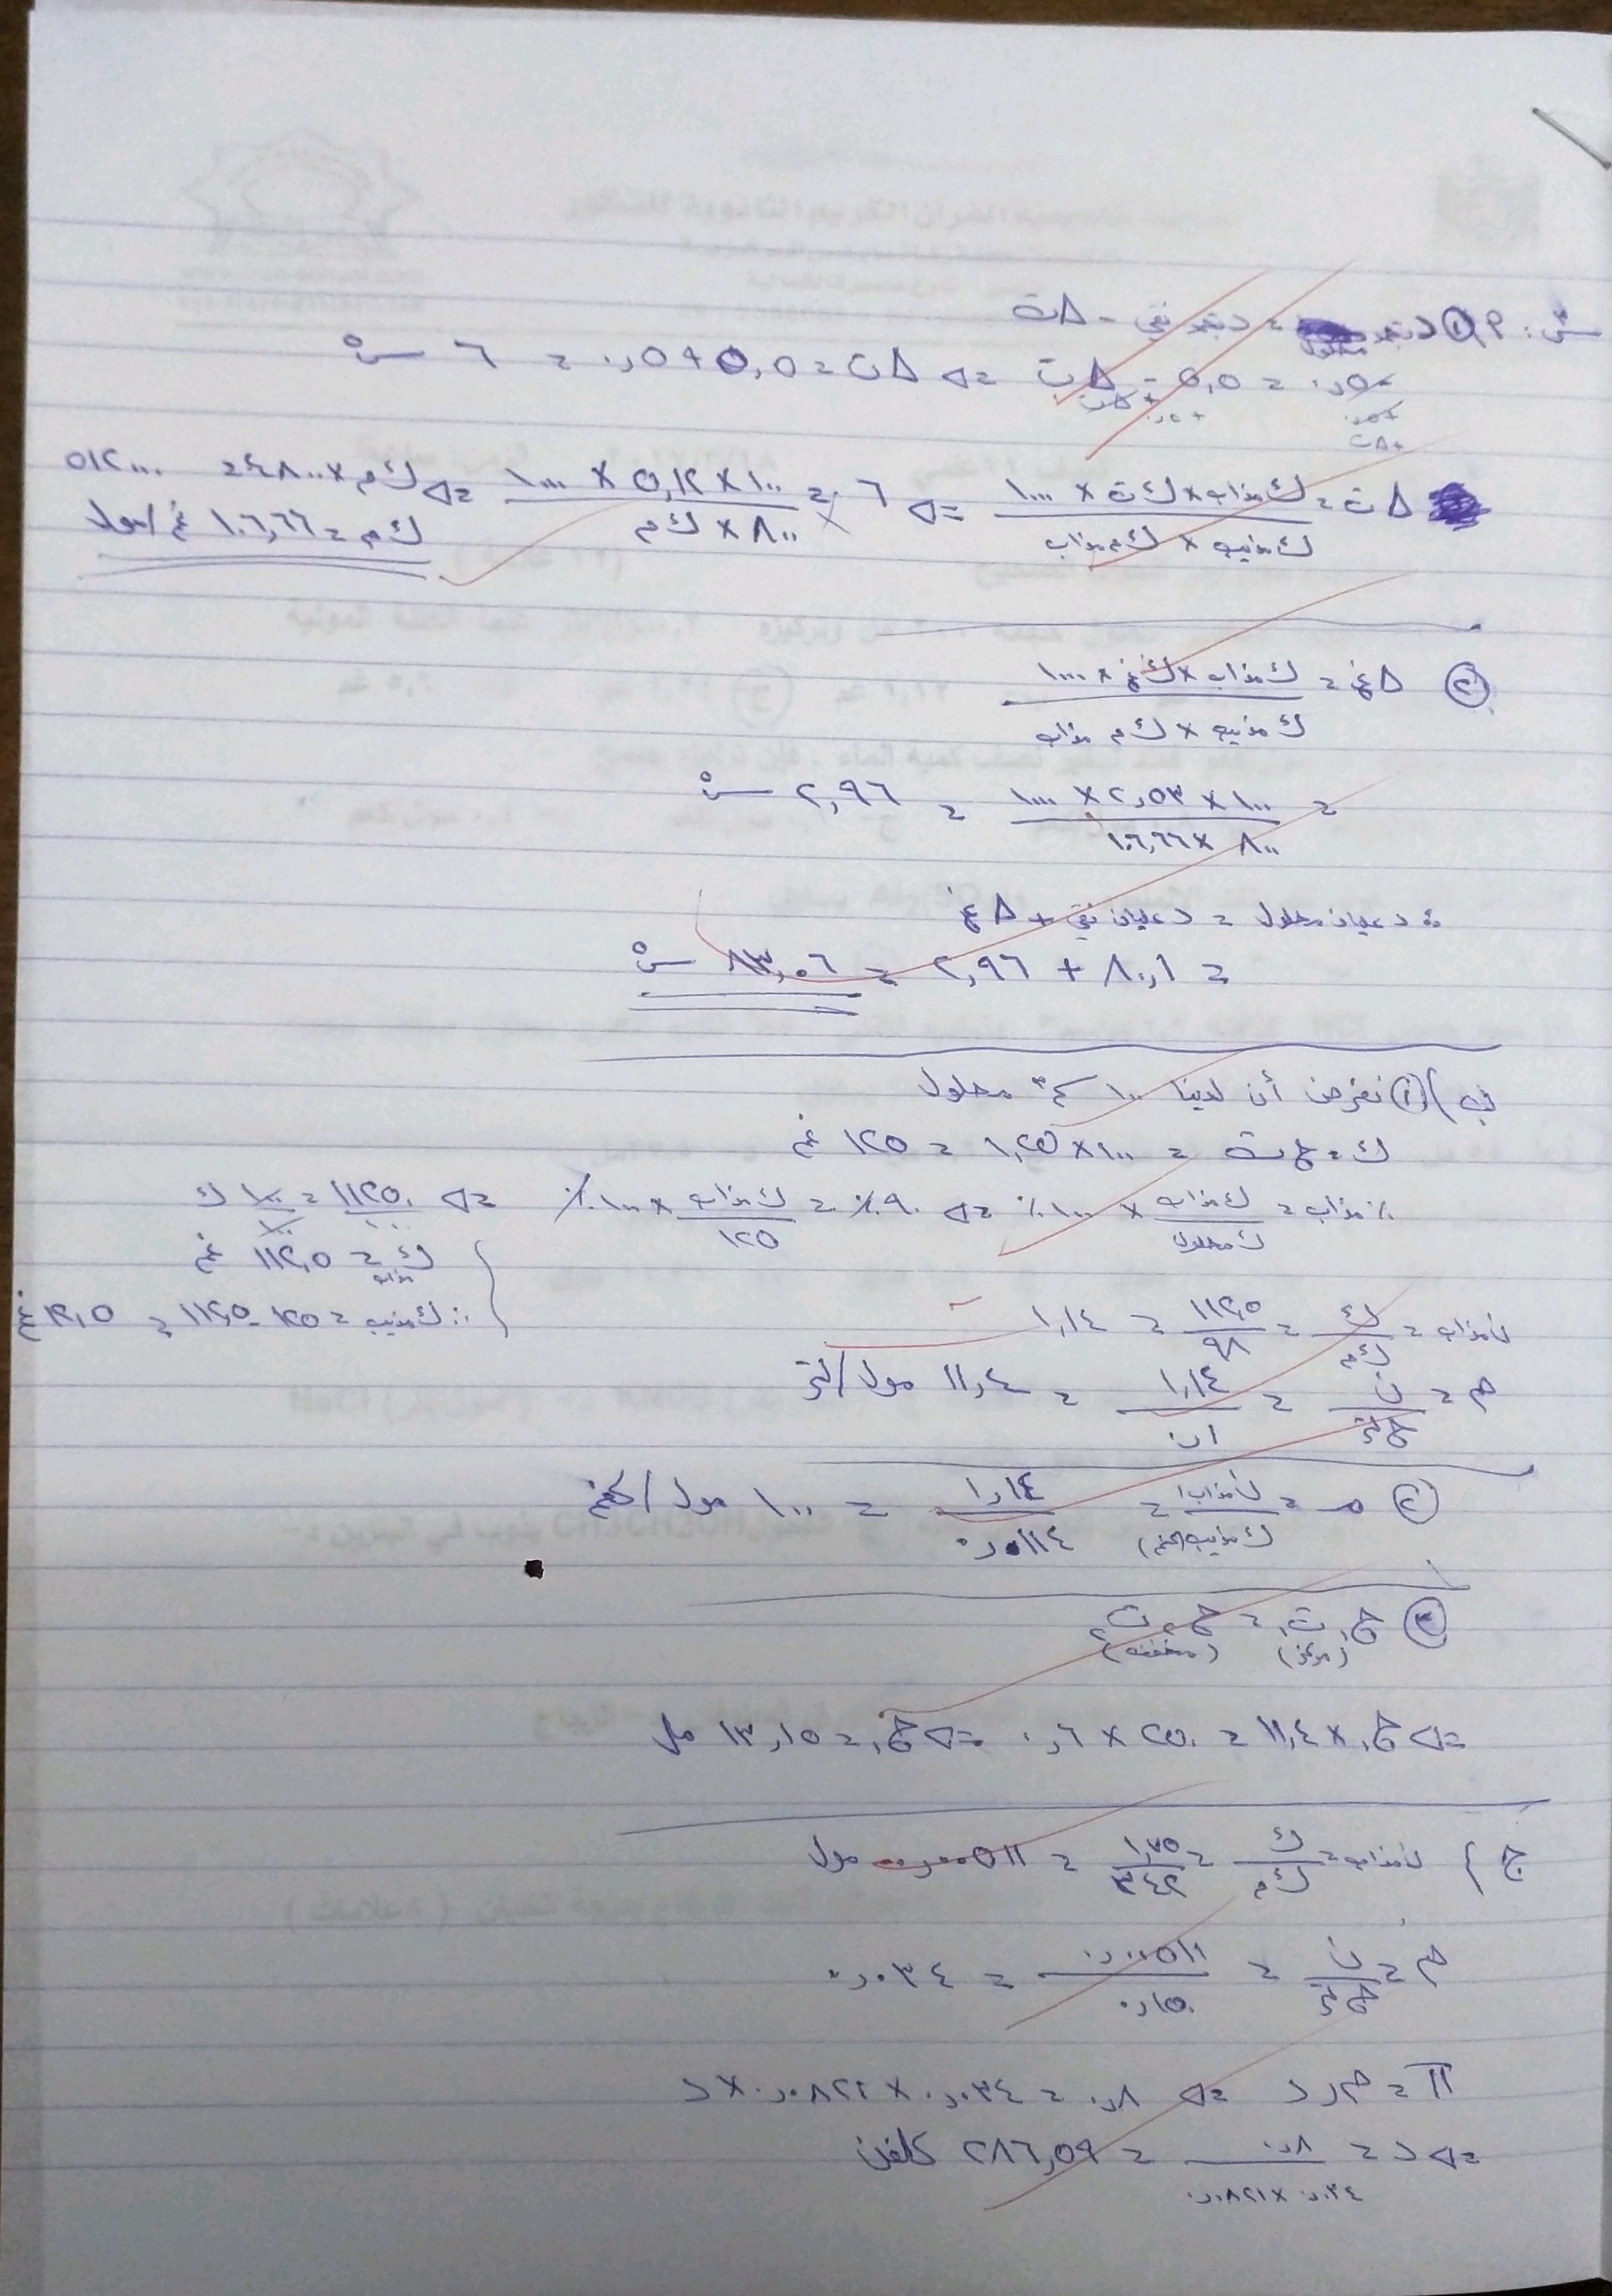 س٣: ٢) ① د تجمد محلول = د تجمد نقي - Δت
-٠,٥ = ٥,٥ - Δت => Δت = ٥,٥ + ٠,٥ = ٦ س°
Δت = ك مذاب × كت × ١٠٠٠ / ك مذيب × ك.م مذاب => ٦ = ١٠٠ × ٥,١٢ × ١٠٠٠ / ٨٠٠ × ك.م => ك.م × ٤٨٠٠ = ٥١٢٠٠٠
ك.م = ١٠٦,٦٦ غم/مول
② Δغ = ك مذاب × كغ × ١٠٠٠ / ك مذيب × ك.م مذاب
= ١٠٠ × ٢,٥٣ × ١٠٠٠ / ٨٠٠ × ١٠٦,٦٦ = ٢,٩٦ س°
∴ د غليان محلول = د غليان نقي + Δغ
= ٨٠,١ + ٢,٩٦ = ٨٣,٠٦ س°
ب) ① نفرض أن لدينا ١٠٠ سم³ محلول
ك = ح ث = ١٠٠ × ١,٢٥ = ١٢٥ غم
٪ مذاب = ك مذاب / ك محلول × ١٠٠٪ => ٩٠٪ = ك مذاب / ١٢٥ × ١٠٠٪ => ١١٢٥٠ / ١٠٠ = ١٠٠ ك / ١٠٠
ك مذاب = ١١٢,٥ غم
∴ ك مذيب = ١٢٥ - ١١٢,٥ = ١٢,٥ غ
ن مذاب = ك / ك.م = ١١٢,٥ / ٩٨ = ١,١٤
م = ن / ح لتر = ١,١٤ / ٠,١ = ١١,٤ مول/لتر
② م = ن مذاب / ك مذيب (كغم) = ١,١٤ / ٠,٠١١٤ = ١٠٠ مول/كغم
③ ح₁ ت₁ = ح₂ ت₂
(مركز) (مخففه)
=> ح₁ × ١١,٤ = ٢٥٠ × ٠,٦ => ح₁ = ١٣,١٥ مل
ج) ن مذاب = ك / ك.م = ١,٧٥ / ٣٤٢ = ٠,٠٠٥١١ مول
م = ن / ح لتر = ٠,٠٠٥١١ / ٠,١٥٠ = ٠,٠٣٤
π = م ر د => ٠,٨ = ٠,٠٣٤ × ٠,٠٨٢١ × د
=> د = ٠,٨ / ٠,٠٣٤ × ٠,٠٨٢١ = ٢٨٦,٥٩ كلفن